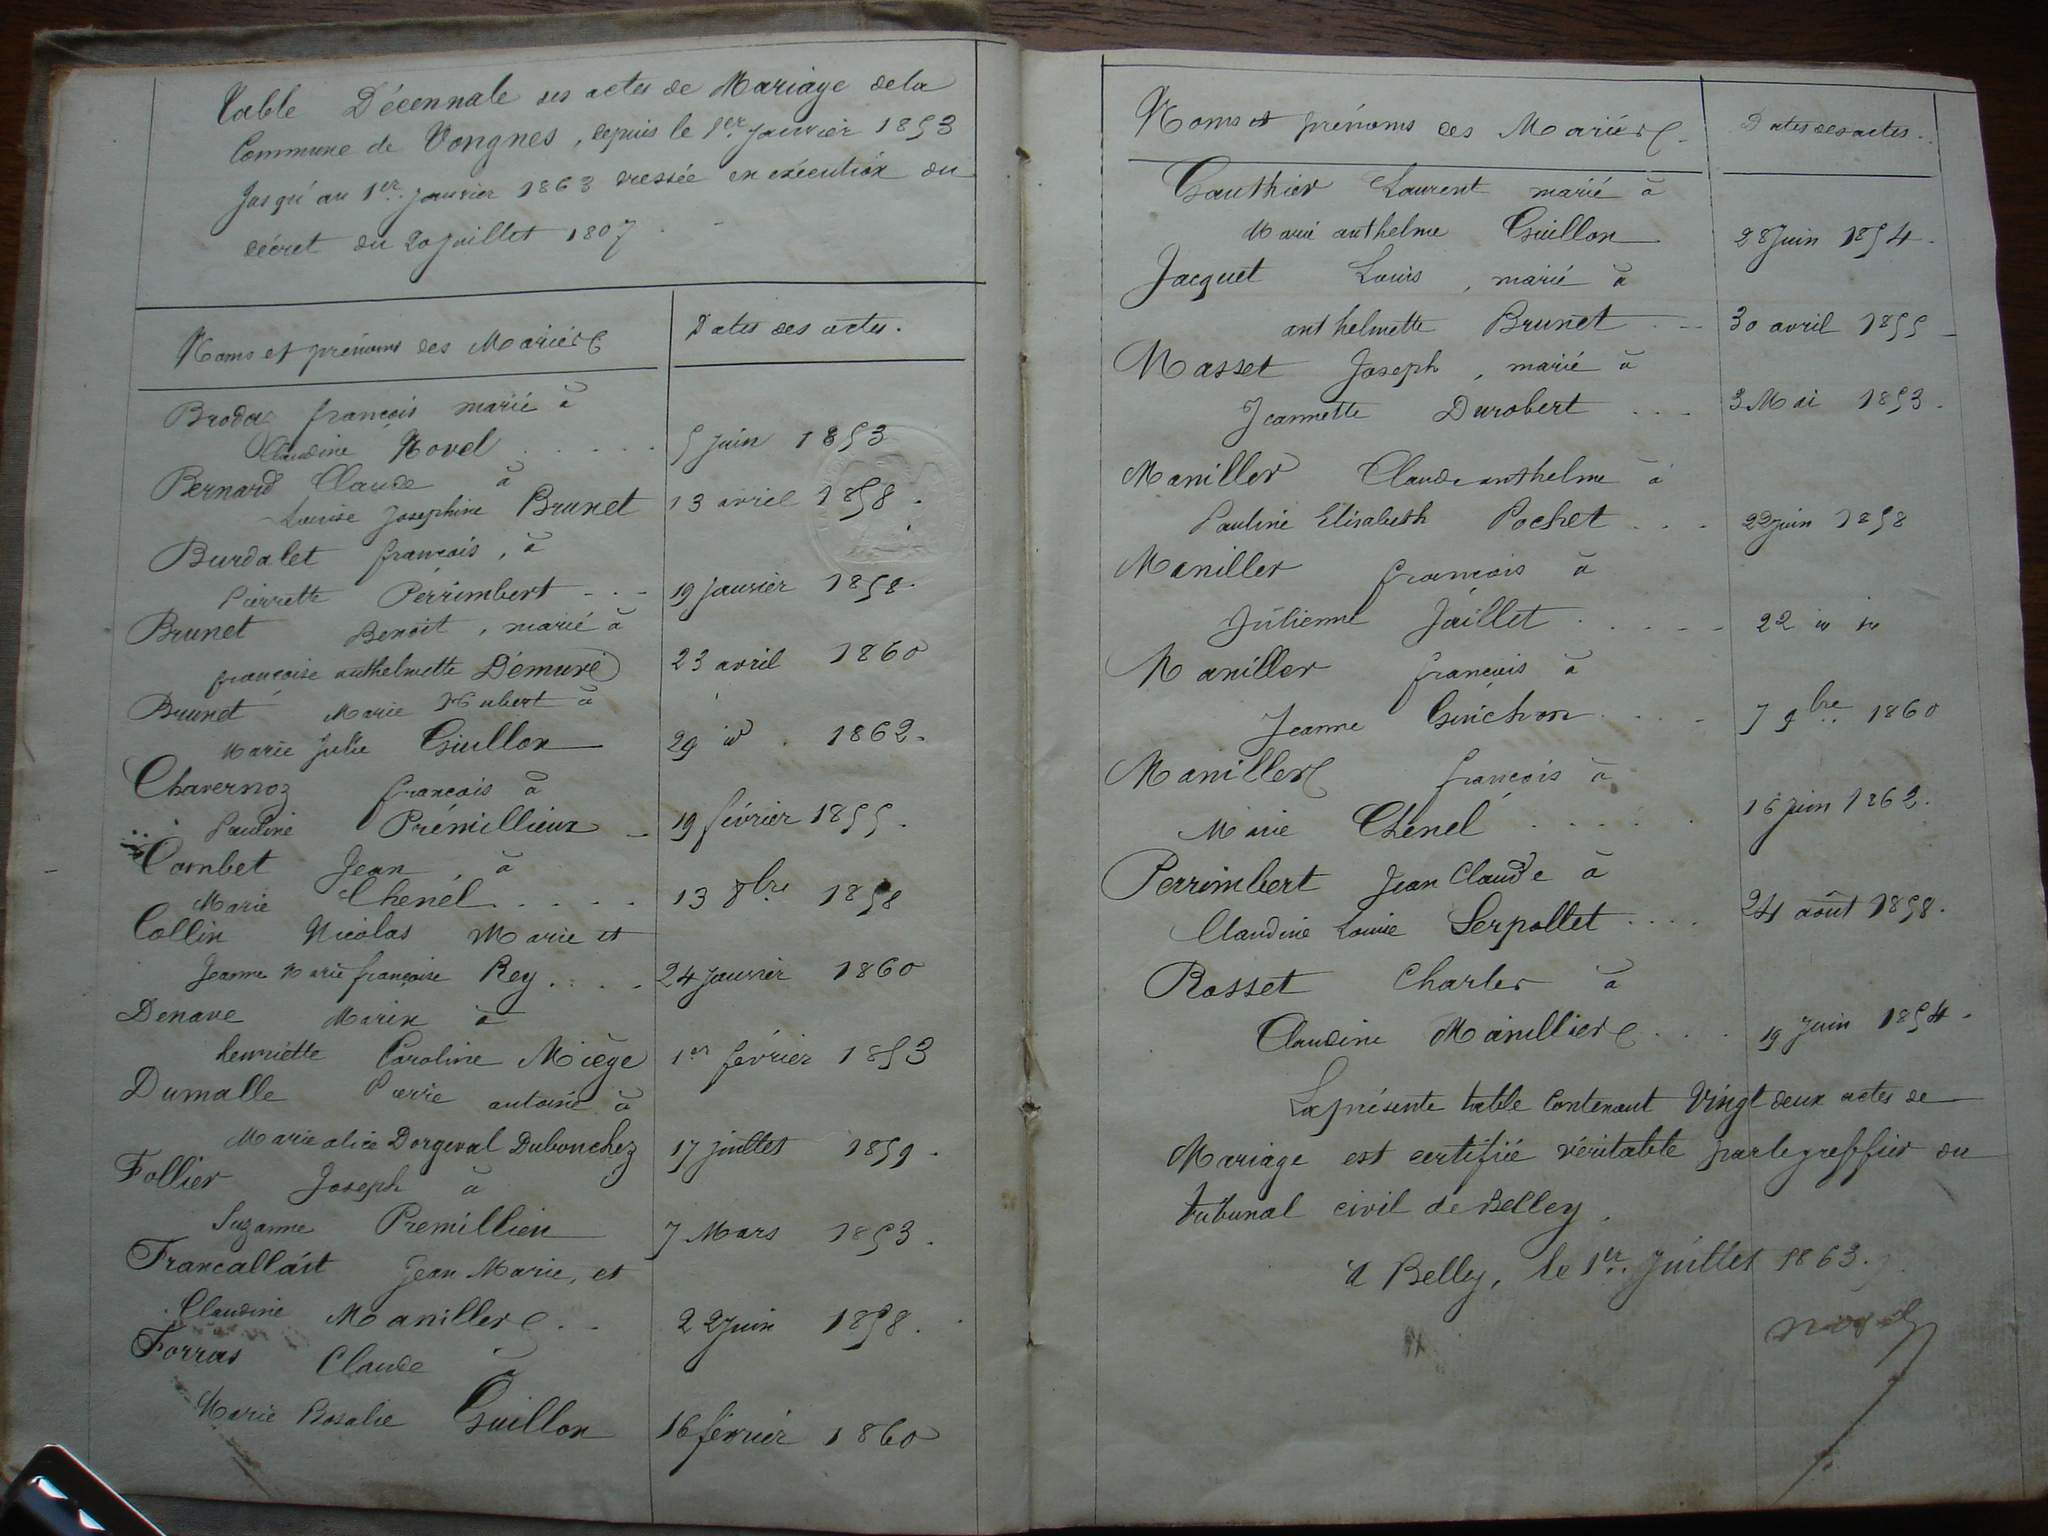 Table Décennale des actes de Mariage de la
Commune de Vongnes, depuis le 1er Janvier 1853
Jusqu'au 1er Janvier 1863 dressée en exécution du
décret du 20 juillet 1807
Noms et prénoms des Mariés
Dates des actes.
françois marié à
Claudine Novel 5 juin 1853
Bernard Claude à
Louise Josephine Brunet 13 avril 1858.
Burdalet françois, à
Pierrette Perrimbert 19 Janvier 1858.
Brunet Benoit, marié à
françoise anthelmette Démuré 23 avril 1860
Brunet Marie Hubert à
Marie Julie Guillon 29 id. 1862.
Chavernoz françois à
Pauline Prémillieux 19 février 1855.
Combet Jean à
Marie Chenel 13 8bre 1858
Collin Nicolas Marie et
Jeanne Marie françoise Rey 24 Janvier 1860
Denave Marin à
henriette Caroline Miège 1er février 1853
Dumalle Pierre antoine à
Marie alice Dorgeval Dubouchez 17 juillet 1859.
Follier Joseph à
Suzanne Premillieu 7 Mars 1853.
Francallait Jean Marie, et
Claudine Maniller 22 juin 1858.
Forras Claude à
Marie Rosalie Guillon 16 février 1860
Noms et prénoms des Mariés
Dates des actes.
Gauthier Laurent marié à
Marie anthelme Guillon 28 Juin 1854.
Jacquet Louis, marié à
anthelmette Brunet 30 avril 1855
Masset Joseph, marié à
Jeannette Durobert 3 Mai 1853.
Maniller Claude anthelme à
Pauline Elisabeth Pochet 22 juin 1858
Maniller françois à
Julienne Jaillet 22 id id
Maniller françois à
Jeanne Guichon 7 9bre 1860
Maniller françois à
Marie Chenel 16 juin 1862.
Perrimbert Jean Claude à
Claudine Louise Serpollet 24 août 1858.
Rosset Charles à
Claudine Manillier 19 Juin 1854.
La présente table contenant Vingt deux actes de
Mariage est certifiée véritable par le greffier du
tribunal civil de Belley.
à Belley, le 1er Juillet 1863.